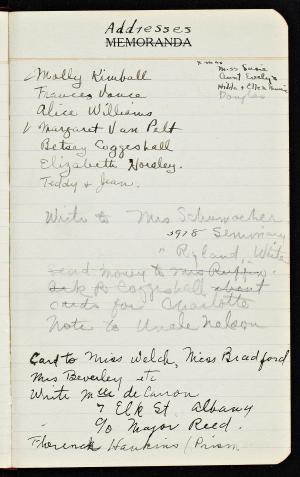 Addresses
MEMORANDA
Xmas
Miss Susie
Aunt Evelyn
Hilda & Ellen
Douglas
Molly Kimball
Frances Vance
Alice Williams
√ Margaret Van Pelt
Betsey Coggeshall
Elizabeth Horsley.
Teddy & Jean.
Write to Mrs Schumacher
2978 Seminary
" Ryland, White
Send money to Mrs Ruffin.
Ask R Coggeshall about
cards for Charlotte
Note to Uncle Nelson
Card to Miss Welch, Miss Bradford
Mrs Beverley etc
Write Mlle de Carron
7 Elk St Albany
c/o Major Reed.
Florence Hankins / Prism